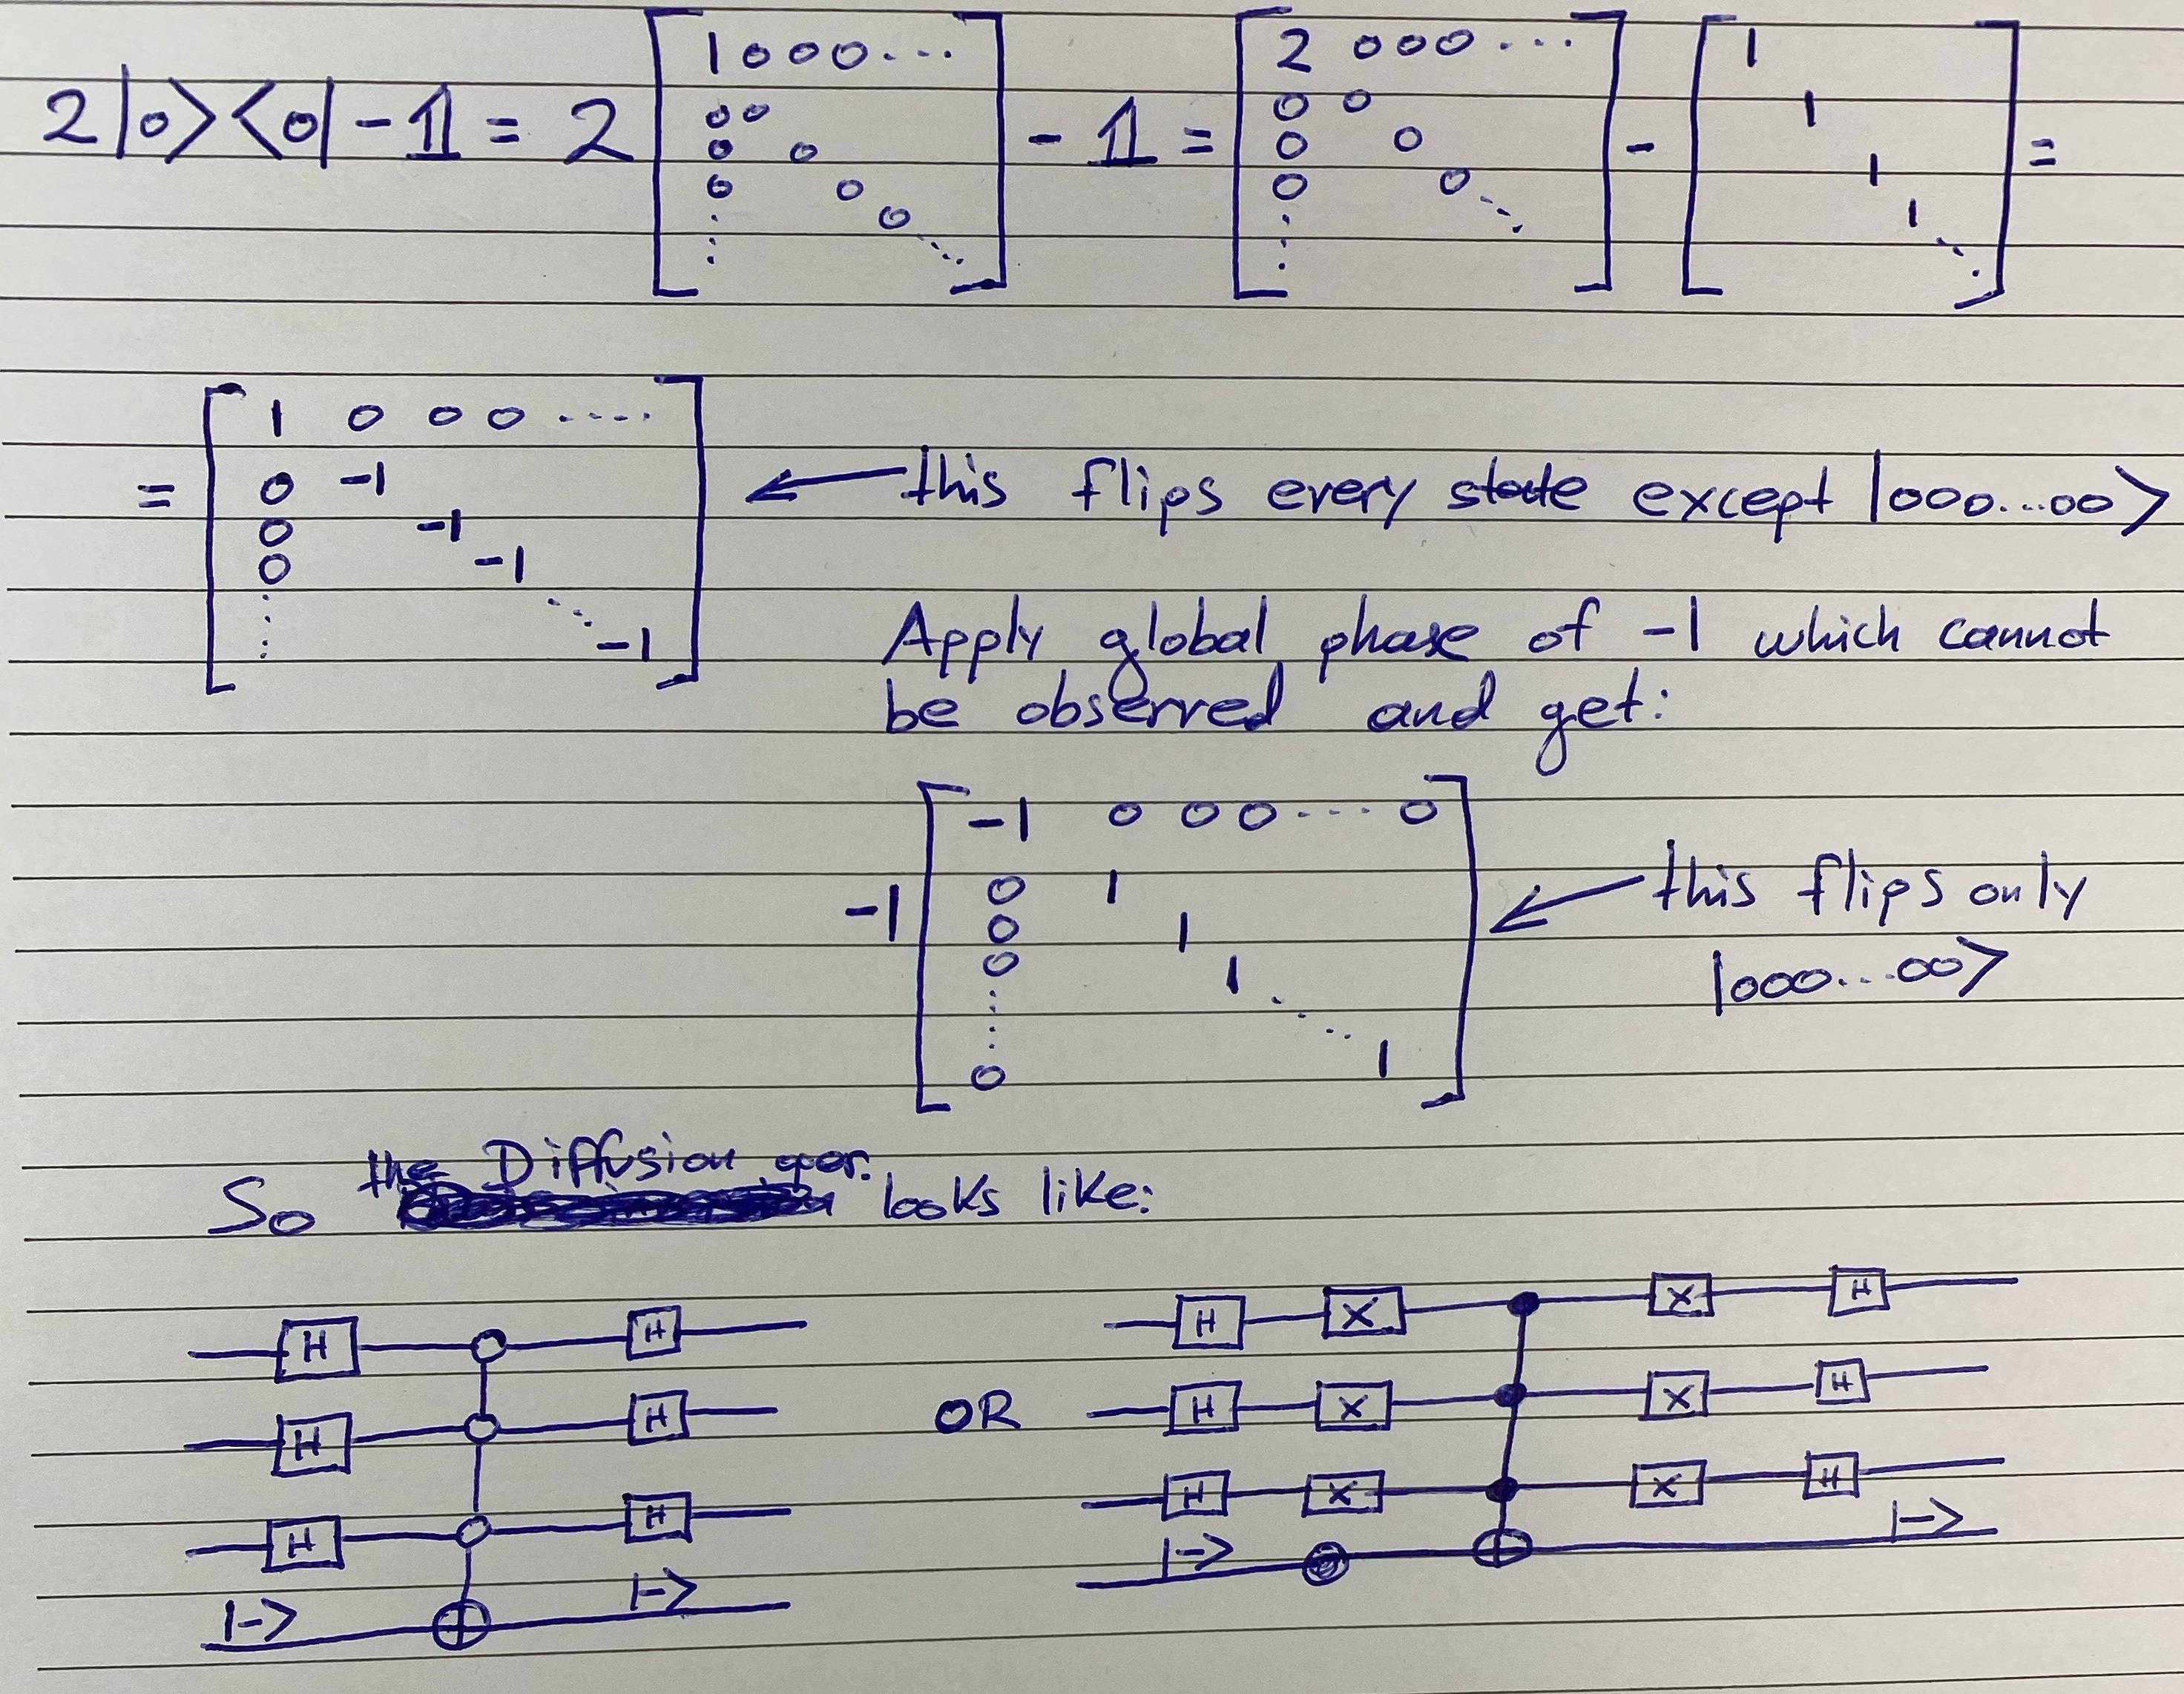 2|0><0| - 𝟙 = 2 [ 1 0 0 0 ... ] - 𝟙 = [ 2 0 0 0 ... ] - [ 1 ] =
0 0
0 0
0 0
0
⋮ ⋱
0 0
0 0
0 0
⋮ ⋱
1
1
1
⋱
= [ 1 0 0 0 .... ]
0 -1
0 -1
0 -1
⋮ ⋱ -1
this flips every state except |000...00>
Apply global phase of -1 which cannot
be observed and get:
-1 [ -1 0 0 0 ... 0 ]
0 1
0 1
0 1
⋮ ⋱
0 1
this flips only
|000...00>
So the Diffusion oper. looks like:
H H
H H
H H
|-> |->
OR
H X X H
H X X H
H X X H
|-> |->